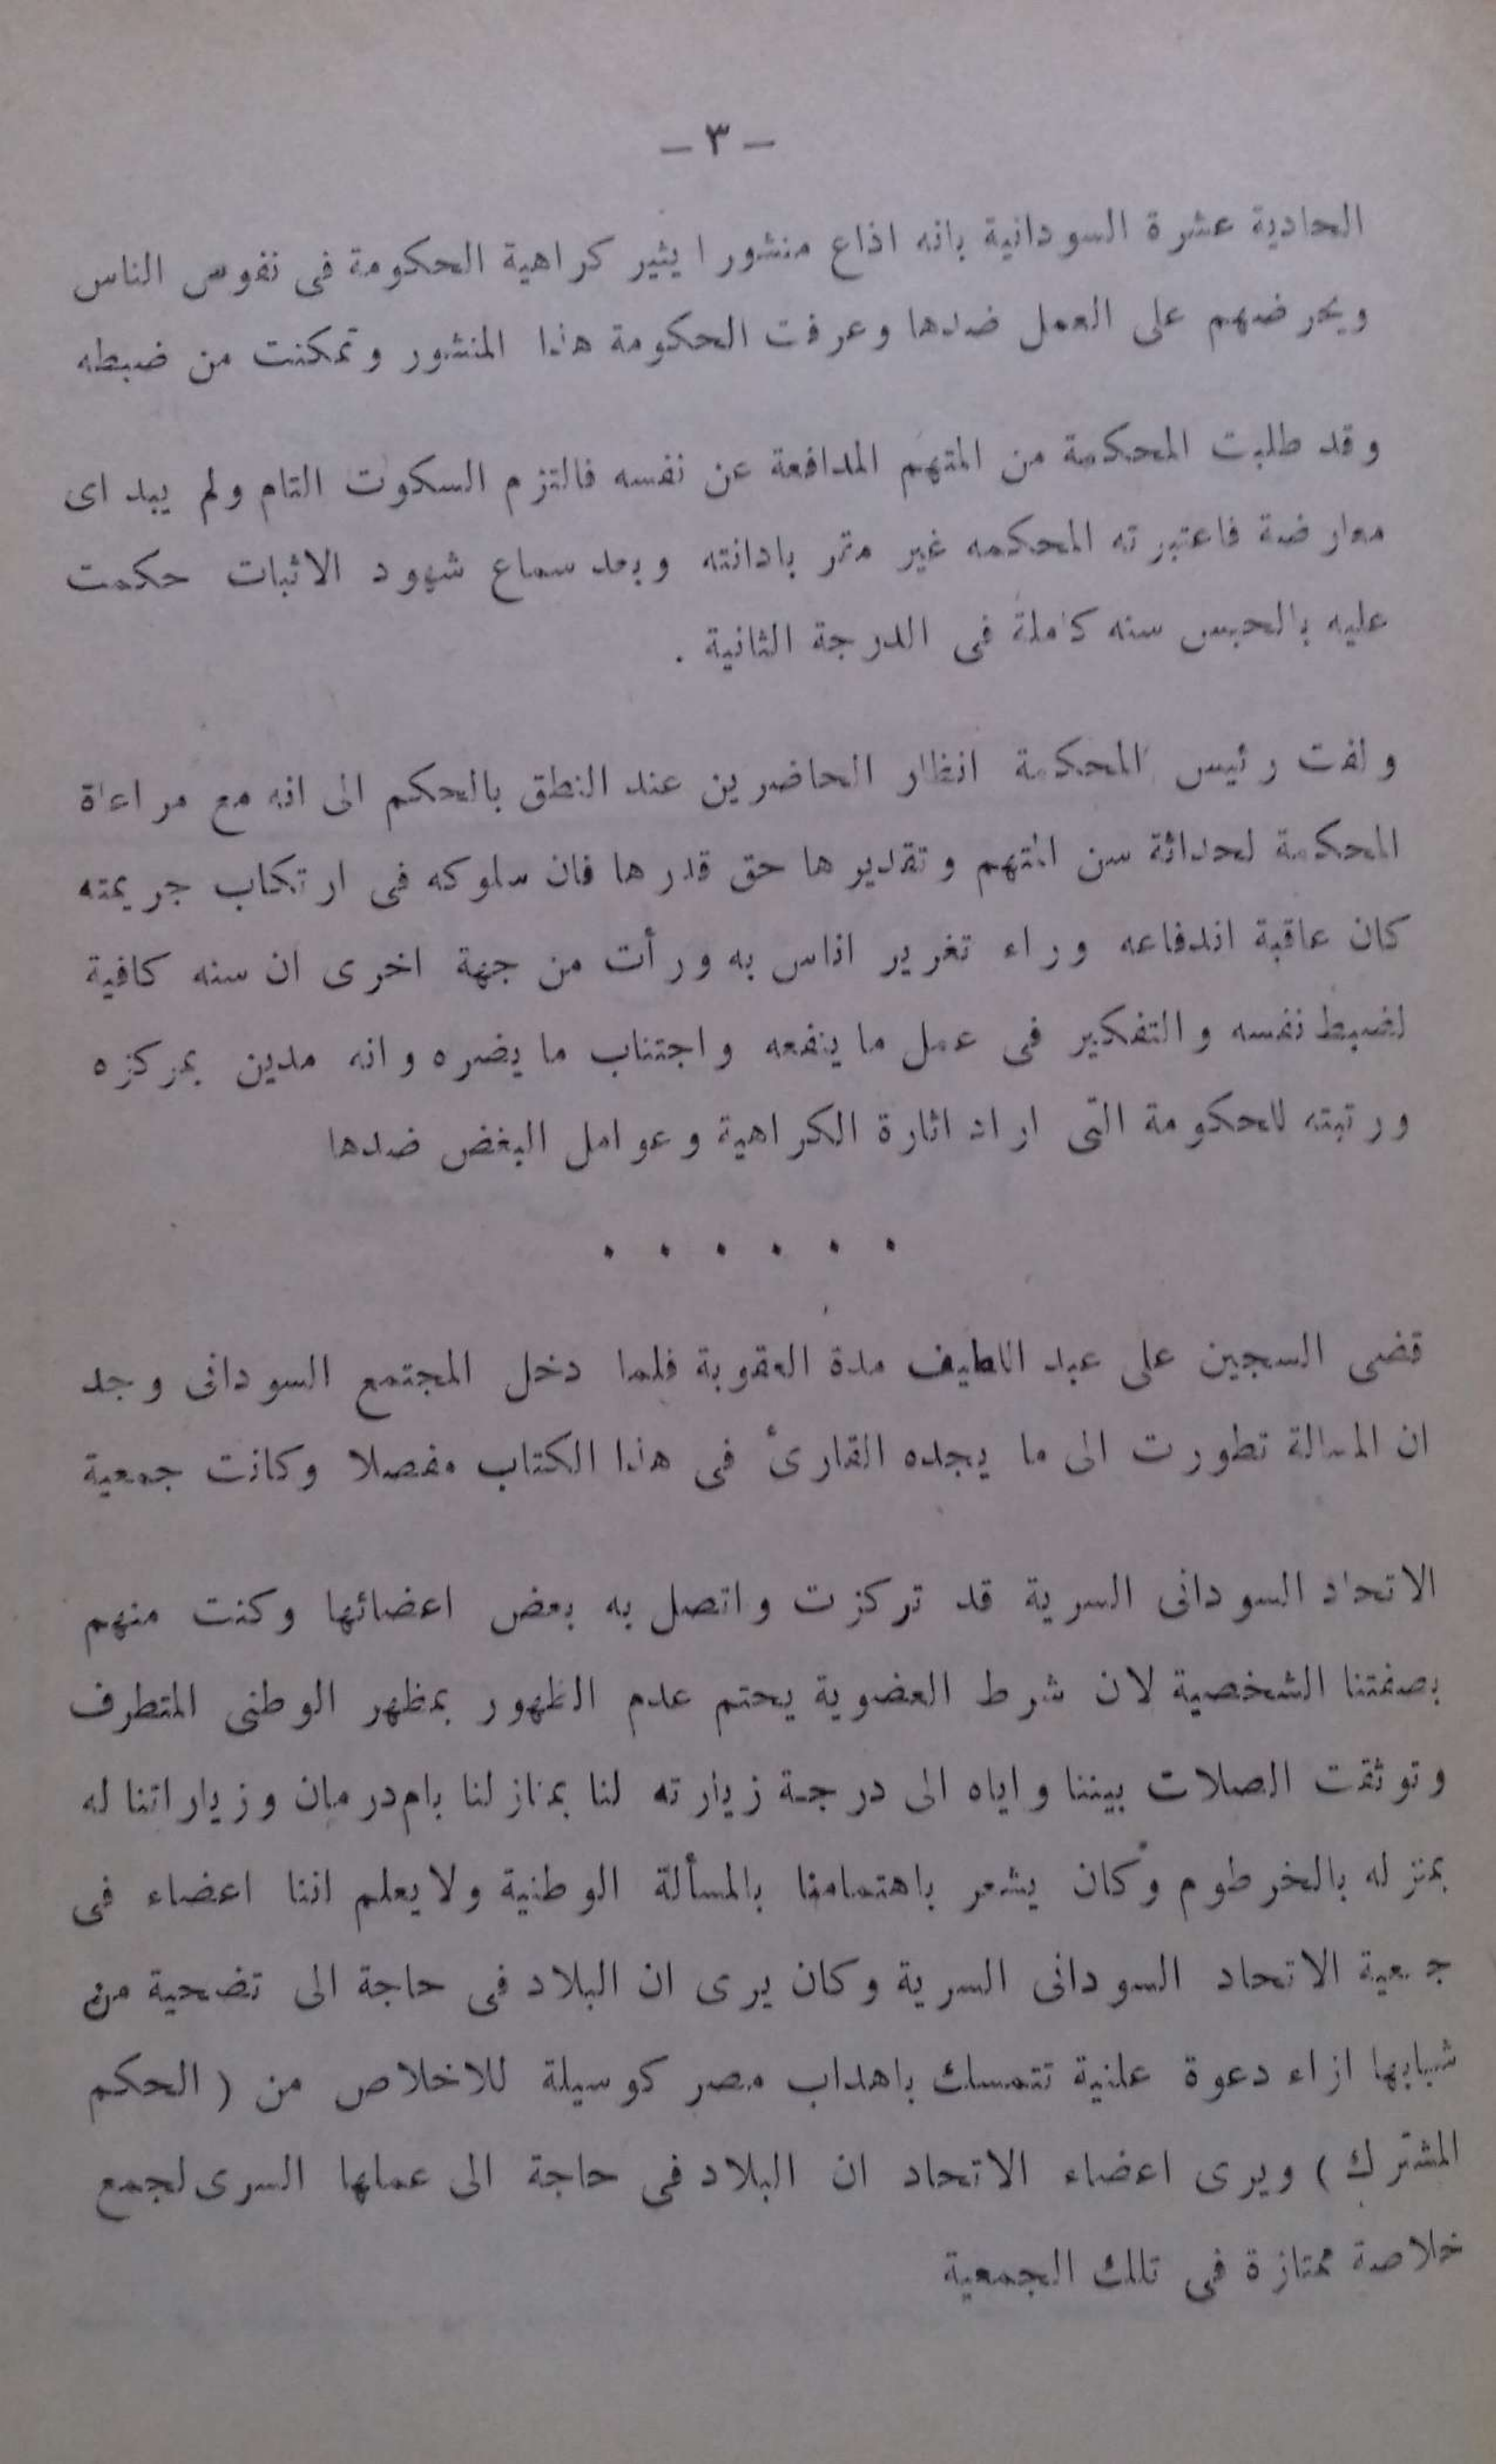 — ٣ —
الحادية عشرة السودانية بانه اذاع منشورا يثير كراهية الحكومة فى نفوس الناس
ويحرضهم على العمل ضدها وعرفت الحكومة هذا المنشور وتمكنت من ضبطه
وقد طلبت المحكمة من المتهم المدافعة عن نفسه فالتزم السكوت التام ولم يبد اى
معارضة فاعتبرته المحكمه غير مقر بادانته وبعد سماع شهود الاثبات حكمت
عليه بالحبس سنه كاملة فى الدرجة الثانية .
ولفت رئيس المحكمة انظار الحاضرين عند النطق بالحكم الى انه مع مراعاة
المحكمة لحداثة سن المتهم وتقديرها حق قدرها فان سلوكه فى ارتكاب جريمته
كان عاقبة اندفاعه وراء تغرير اناس به ورأت من جهة اخرى ان سنه كافية
لضبط نفسه والتفكير فى عمل ما ينفعه واجتناب ما يضره وانه مدين بمركزه
ورتبته للحكومة التى اراد اثارة الكراهية وعوامل البغض ضدها
. . . . . .
قضى السجين على عبد اللطيف مدة العقوبة فلما دخل المجتمع السودانى وجد
ان المسالة تطورت الى ما يجده القارىء فى هذا الكتاب مفصلا وكانت جمعية
الاتحاد السودانى السرية قد تركزت واتصل به بعض اعضائها وكنت منهم
بصفتنا الشخصية لان شرط العضوية يحتم عدم الظهور بمظهر الوطنى المتطرف
وتوثقت الصلات بيننا واياه الى درجة زيارته لنا بمنازلنا بام درمان وزياراتنا له
بمنزله بالخرطوم وكان يشعر باهتمامنا بالمسألة الوطنية ولا يعلم اننا اعضاء فى
جمعية الاتحاد السودانى السرية وكان يرى ان البلاد فى حاجة الى تضحية من
شبابها ازاء دعوة علنية تتمسك باهداب مصر كوسيلة للاخلاص من ( الحكم
المشترك ) ويرى اعضاء الاتحاد ان البلاد فى حاجة الى عملها السرى لجمع
خلاصة ممتازة فى تلك الجمعية